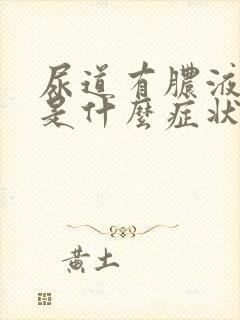 尿道有膿液
是什麼症狀
黃土